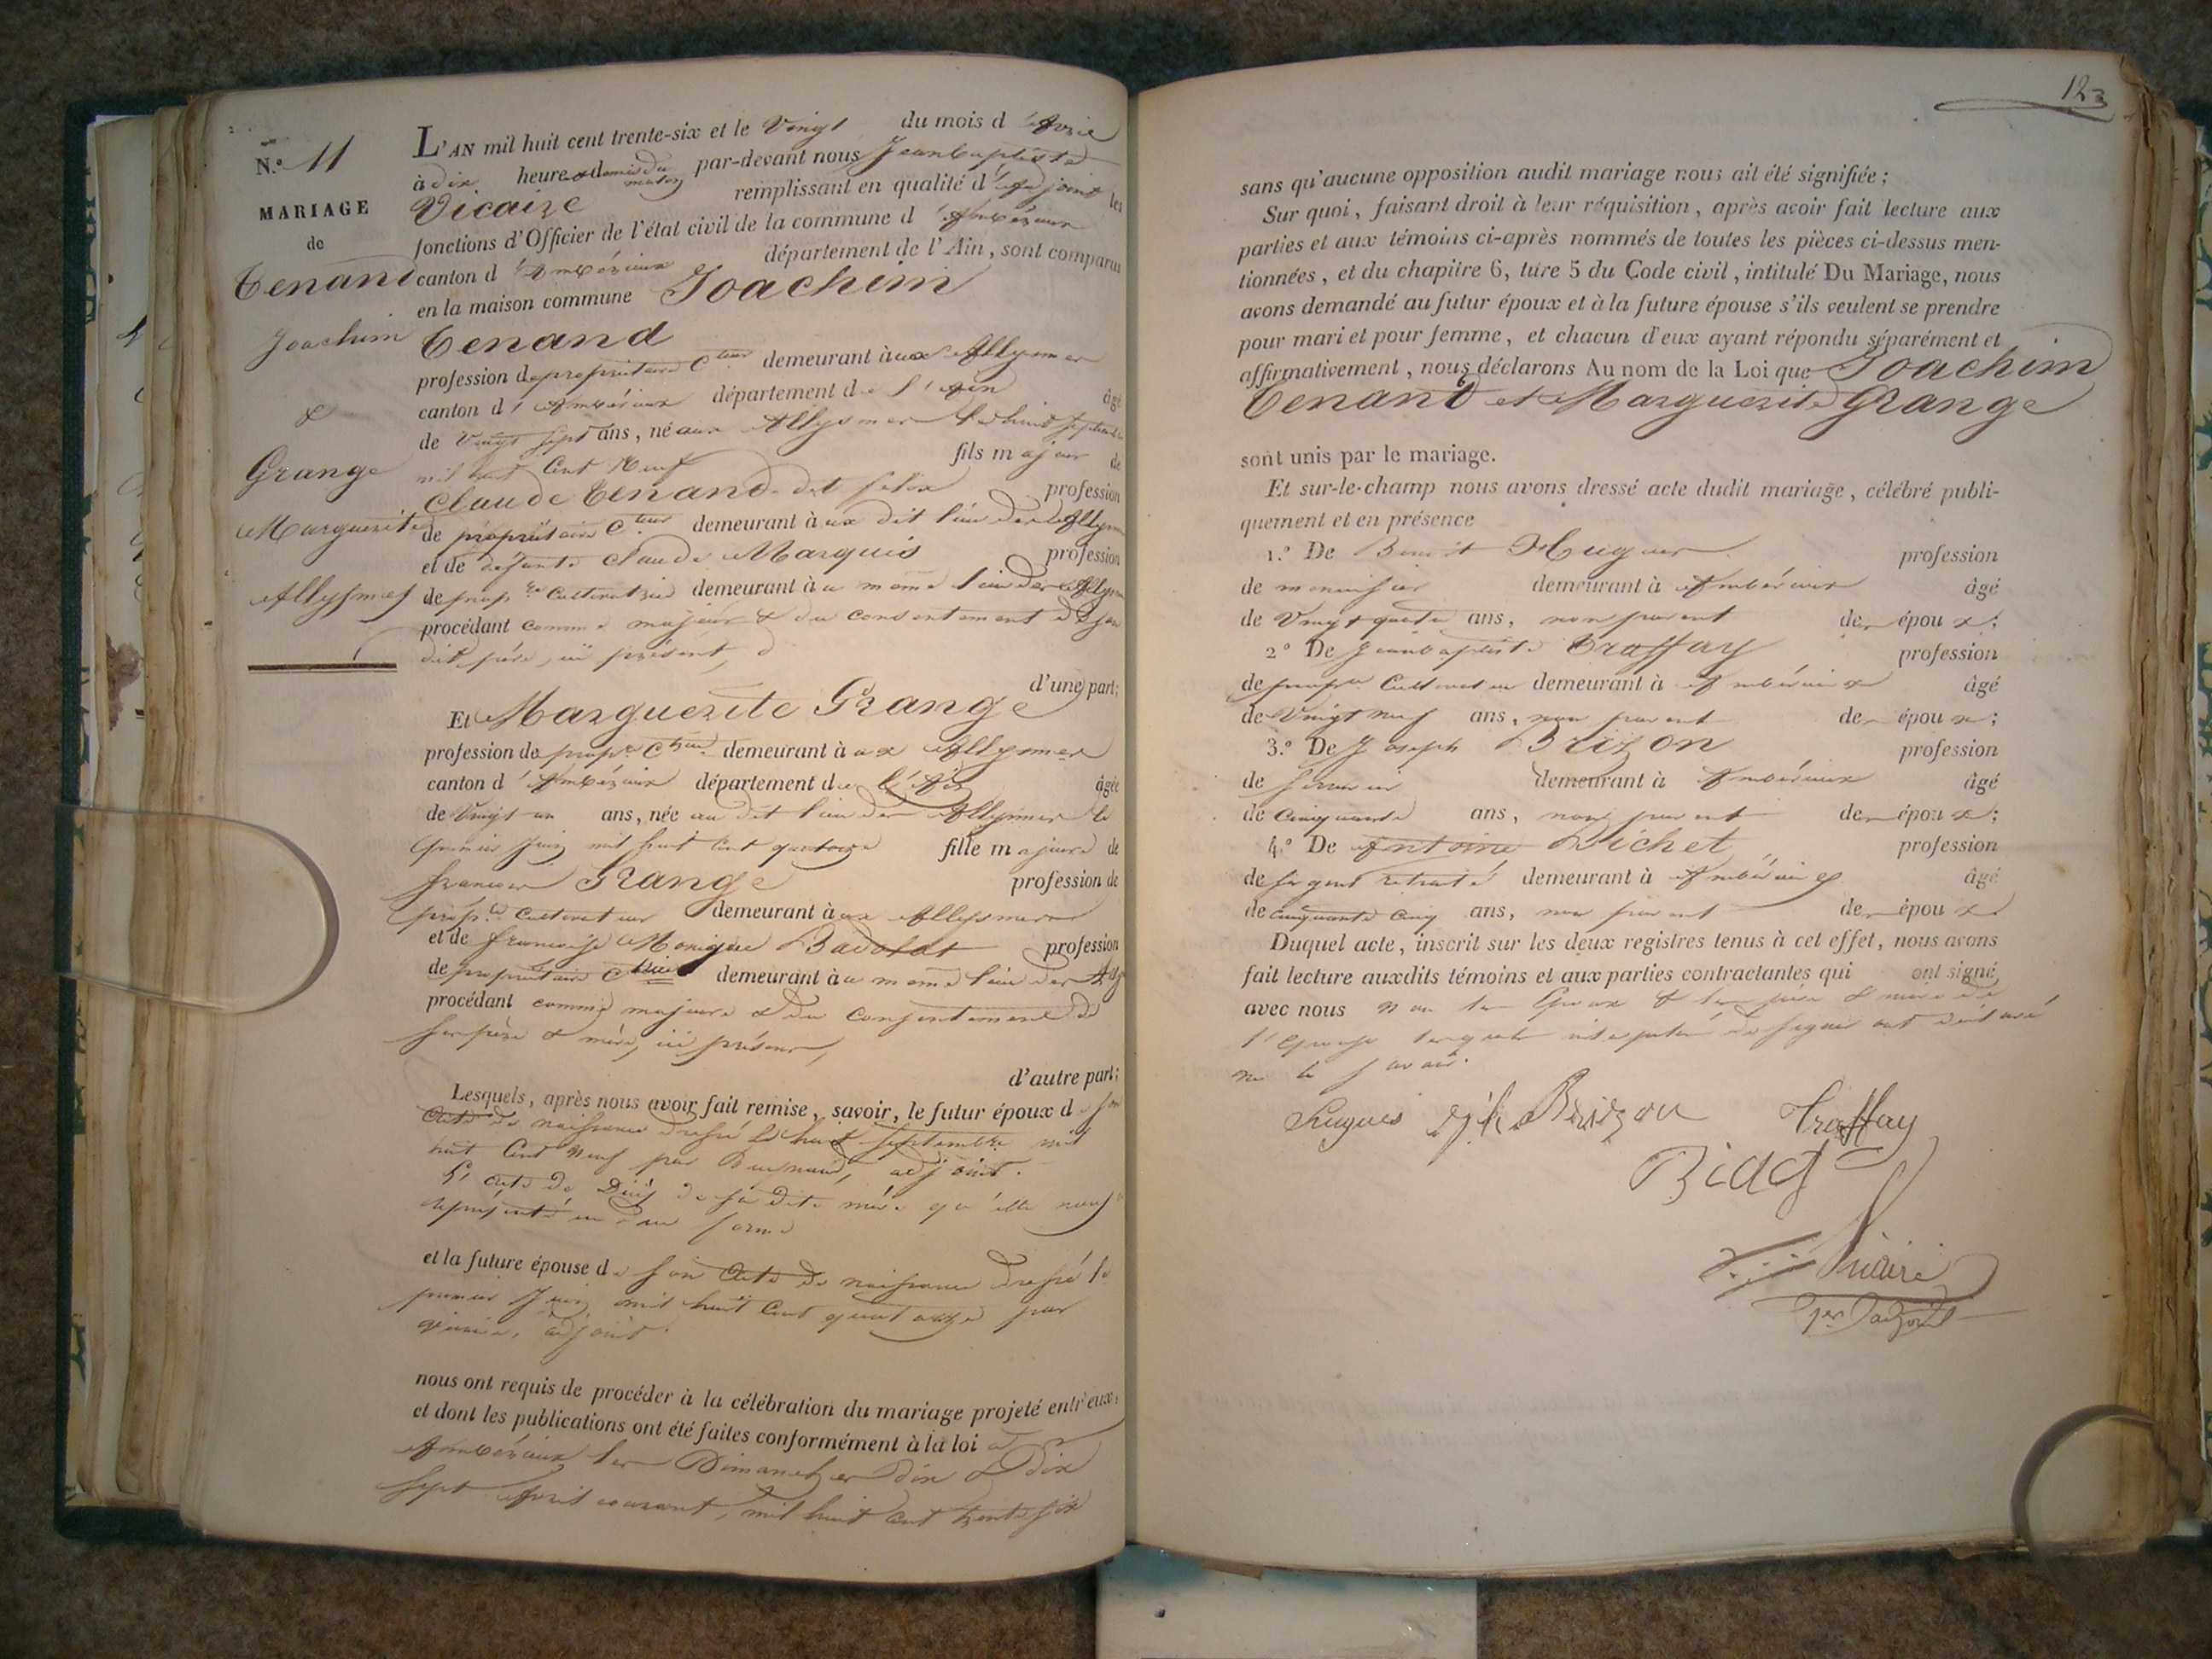 N.º 11
MARIAGE
de
Tenand
Joachim
&
Grange
Marguerite
Allysmes
L'AN mil huit cent trente-six et le Vingt du mois d'Avril
à dix heures & demie du matin par-devant nous Jean baptiste
Vicaire remplissant en qualité d'adjoint les
fonctions d'Officier de l'état civil de la commune d'Ambérieux
canton d'Ambérieux département de l'Ain, sont comparus
en la maison commune Joachim
Tenand
profession de propriétaire Cteur demeurant à aux Allysmes
canton d'Ambérieux département de l'Ain âgé
de Vingt sept ans, né aux Allysmes le huit septembre
mil huit Cent Neuf fils majeur de
Claude Tenand dit profession
de propriétaire Cteur demeurant à au dit lieu des Allysmes
et de défunte Claude Marquis profession
de propre Cultivatrice demeurant à au même lieu des Allysmes
procédant comme majeur & du consentement de son
dit père, ici présent, d'une part;
Et Marguerite Grange
profession de propre Ctrice demeurant à aux Allysmes
canton d'Ambérieux département de l'Ain âgée
de Vingt un ans, née au dit lieu des Allysmes le
premier Juin mil huit Cent quatorze fille majeure de
françois Grange profession de
propre Cultivateur demeurant à aux Allysmes
et de françoise Monique Badolat profession
de propriétaire Ctrice demeurant à au même lieu des Allys
procédant comme majeure & du consentement de
ses père & mère, ici présens,
d'autre part;
Lesquels, après nous avoir fait remise, savoir, le futur époux de son
acte de naissance dressé le huit septembre mil
huit Cent Neuf par adjoint.
L'acte de Décès de sa dite mère qu'elle nous
représenté en due forme
et la future épouse de son acte de naissance dressé le
premier Juin mil huit Cent quatorze par
adjoint.
nous ont requis de procéder à la célébration du mariage projeté entr'eux,
et dont les publications ont été faites conformément à la loi à
Ambérieux les Dimanches Dix & Dix
sept Avril courant, mil huit Cent trente six
123
sans qu'aucune opposition audit mariage nous ait été signifiée;
Sur quoi, faisant droit à leur réquisition, après avoir fait lecture aux
parties et aux témoins ci-après nommés de toutes les pièces ci-dessus men-
tionnées, et du chapitre 6, titre 5 du Code civil, intitulé Du Mariage, nous
avons demandé au futur époux et à la future épouse s'ils veulent se prendre
pour mari et pour femme, et chacun d'eux ayant répondu séparément et
affirmativement, nous déclarons Au nom de la Loi que Joachim
Tenand et Marguerite Grange
sont unis par le mariage.
Et sur-le-champ nous avons dressé acte dudit mariage, célébré publi-
quement et en présence
1.º De Benoit Hugues profession
de menuisier demeurant à Ambérieux âgé
de Vingt quatre ans, non parent des époux;
2º De Jean baptiste Traffay profession
de propre Cultivateur demeurant à Ambérieux âgé
de Vingt neuf ans, non parent des époux;
3.º De Joseph Brizon profession
de serrurier demeurant à Ambérieux âgé
de Cinquante ans, non parent des époux;
4.º De Antoine Pichet profession
de sergent retraité demeurant à Ambérieux âgé
de cinquante Cinq ans, non parent des époux
Duquel acte, inscrit sur les deux registres tenus à cet effet, nous avons
fait lecture auxdits témoins et aux parties contractantes qui ont signé
avec nous non les époux & les père & mère de
l'épouse lesquels interpelés de signer ont déclaré
ne le savoir.
Hugues Jph Brizon Traffay
Vicaire